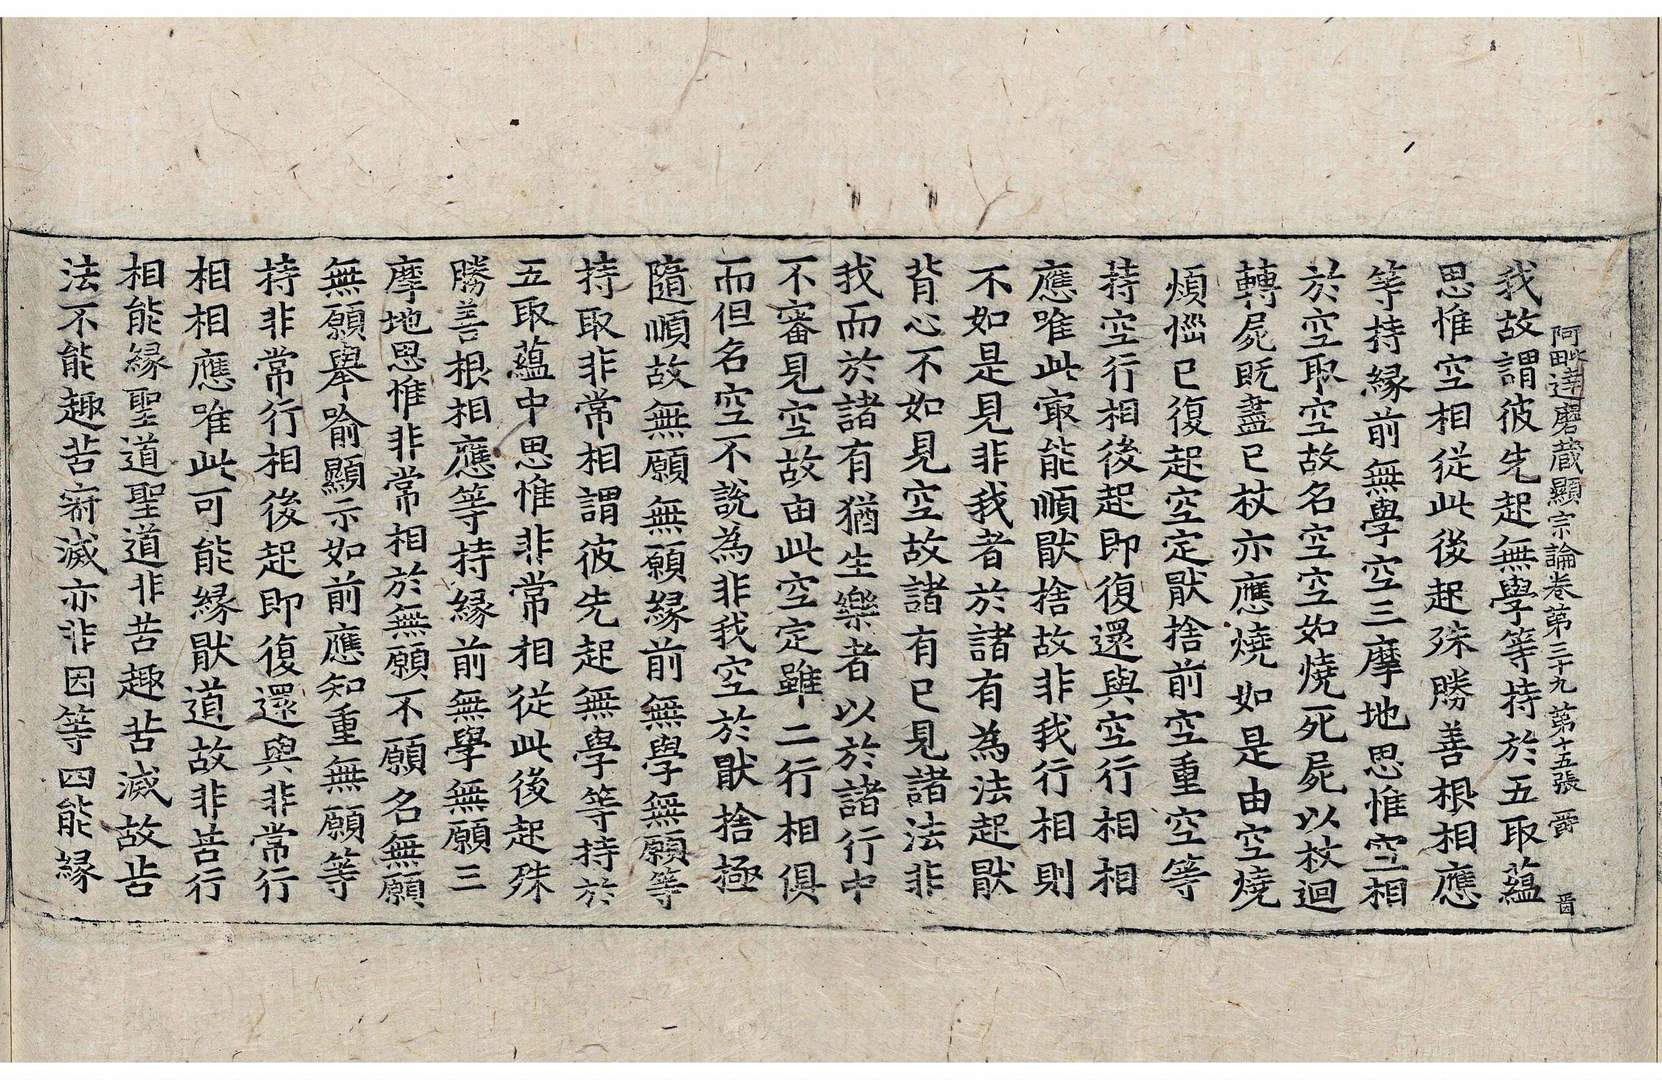 阿毗達磨藏顯宗論卷第三十九 第十五張 爵
我故謂彼先起無學等持於五取蘊
思惟空相從此後起殊勝善根相應
等持緣前無學空三摩地思惟空相
於空取空故名空空如燒死屍以杖迴
轉屍既盡已杖亦應燒如是由空燒
煩惱已復起空定猒捨前空重空等
持空行相後起即復還與空行相相
應唯此㝡能順猒捨故非我行相則
不如是見非我者於諸有為法起猒
背心不如見空故諸有已見諸法非
我而於諸有猶生樂者以於諸行中
不審見空故由此空定雖二行相俱
而但名空不說為非我空於猒捨極
隨順故無願無願緣前無學無願等
持取非常相謂彼先起無學等持於
五取蘊中思惟非常相從此後起殊
勝善根相應等持緣前無學無願三
摩地思惟非常相於無願不願名無願
無願舉喻顯示如前應知重無願等
持非常行相後起即復還與非常行
相相應唯此可能緣猒道故非苦行
相能緣聖道聖道非苦趣苦滅故苦
法不能趣苦㝛滅亦非因等四能緣